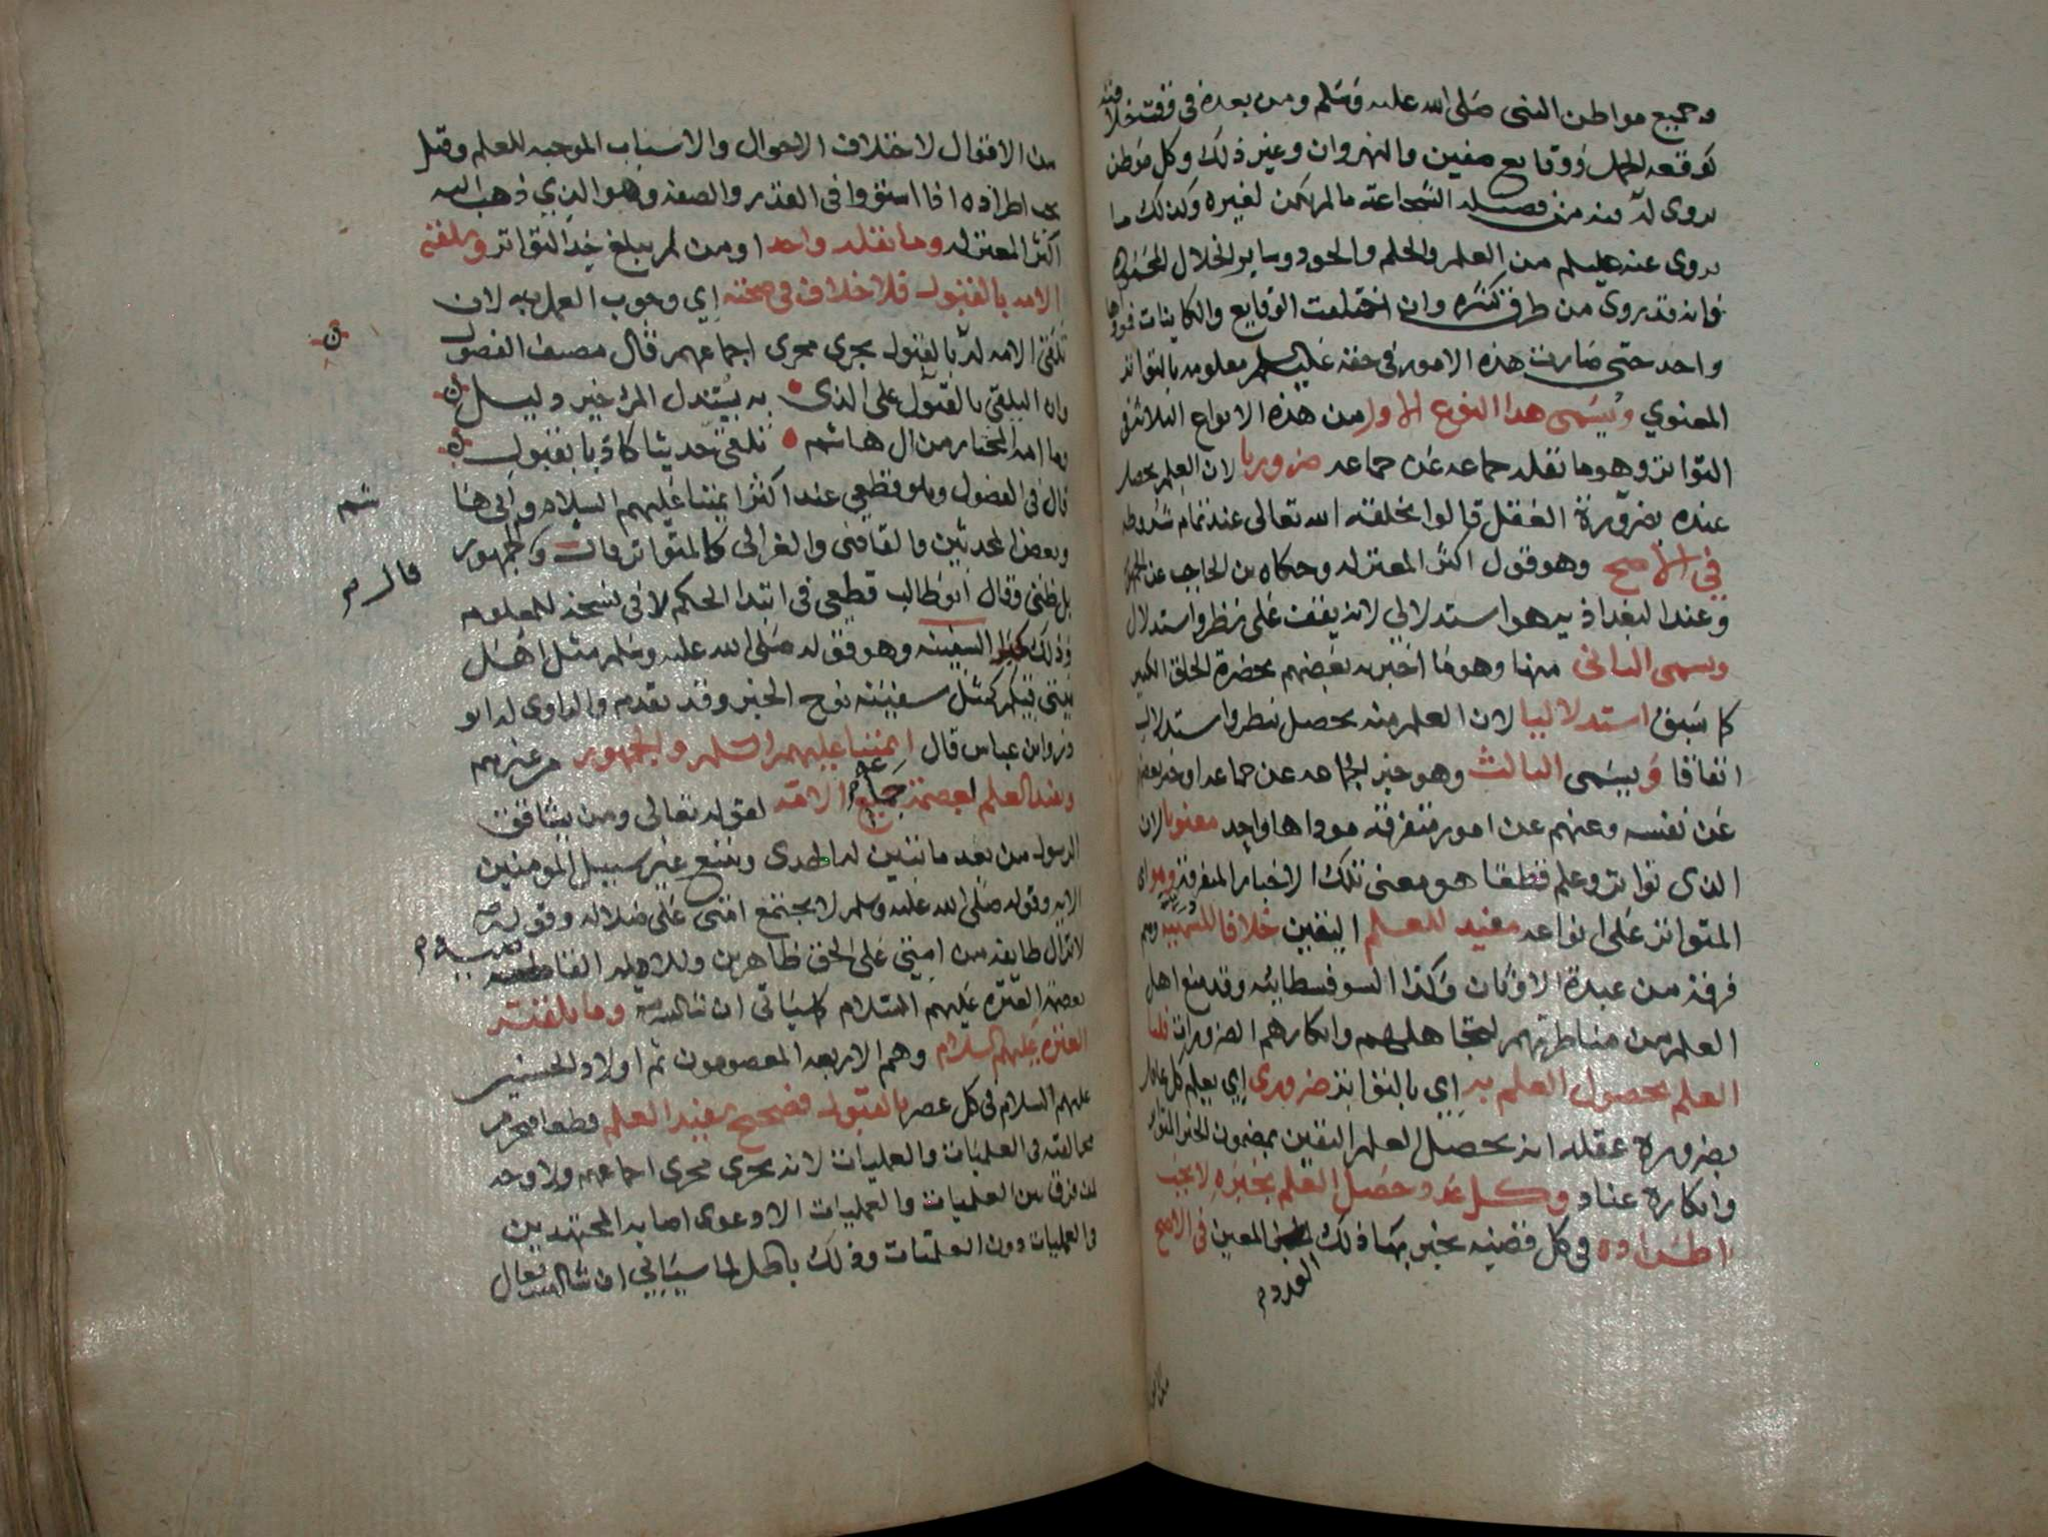 وجميع مواطن النبي صلى الله عليه وسلم ومن بعده في وقت خلافته
كوقعه الجمل ووقايع صفين والنهروان وغير ذلك وكل موطن
يروى له فيه من فصله الشجاعة ما لم يكن لغيره وكذلك ما
يروى عنه عليلم من العلم والحلم والجود وساير الخلال المحموده
فانه قد يروى من طرف كثيره وان اختلفت الوقايع والكاينات فمودها
واحد حتى صارت هذه الامور في حقه عليلسلم معلومه بالتواتر
المعنوي ويسمى هذا النوع الاول من هذه الانواع الثلاثه في
التواتر وهو ما نقله جماعه عن جماعه ضروريا لان العلم يحصل
عنده بضرورة العقل قالوا بخلقه الله تعالى عند تمام شروطه
في الاصح وهو قول اكثر المعتزله وحكاه بن الحاجب عن الجمهور
وعند البغداذيه هو استدلالي لانه يقف على نظر واستدلال
ويسمى الثاني منها وهو ما اخبر به بعضهم بحضرة الخلق الكبير
كما سبق استدلاليا لان العلم منه يحصل بنظر واستدلال
اتفاقا ويسمى الثالث وهو خبر الجماعه عن جماعه او خبر بعضهم
عن نفسه وعنهم عن امور متفرقه موداها واحد معنويا لان
الذي تواتر وعلم قطعا هو معنى تلك الاخبار المتفرقه وهو اي
المتواتر على انواعه مفيد للعلم اليقين خلافا للسمنيه وهم
فرقه من عبدة الاوثان وكذا السوفسطائيه وقد منع اهل
العلم من مناظرتهم لتجاهلهم وانكارهم الضرورات قلنا
العلم بحصول العلم به اي بالتواتر ضروري اي يعلم كل عاقل
بضرورة عقله انه يحصل العلم اليقين بمضمون الخبر المتواتر
وانكاره عناد وكل عدد حصل العلم بخبره لا يجب
اطراده في كل قضيه يخبر بها ذلك المعين في الاصح
العدد م
من الاقوال لاختلاف الاحوال والاسباب الموجبه للعلم وقيل
يجب اطراده اذا استووا في القدر والصفه وهو الذي ذهب اليه
اكثر المعتزله وما نقله واحد او من لم يبلغ حد التواتر وتلقته
الامه بالقبول فلا خلاف في صحته اي وجوب العمل به لان
تلقي الامه له بالقبول يجري مجرى اجماعهم قال مصنف الفصول
ن
وان التلقي بالقبول على الذي به يستدل المرء خير دليل
وما امه المختار من ال هاشم تلقى حديثا كاذبا بقبول
قال في الفصول وهو قطعي عند اكثر ايمتنا عليهم السلام وابي هاشم
وبعض المحدثين والقاضي والغزالي كالمتواتر قال والجمهور
بل ظني وقال ابو طالب قطعي في ابتدا الحكم لا في نسخه للمعلوم
قال م
وذلك كخبر السفينه وهو قوله صلى الله عليه وسلم مثل اهل
بيتي فيكم كمثل سفينه نوح الخبر وقد تقدم والراوي له ابو
ذر وابن عباس قال ايمتنا عليهم السلم والجمهور من غيرهم
ويفيد العلم لعصمة جماعة الامه لقوله تعالى ومن يشاقق
الرسول من بعد ما تبين له الهدى ويتبع غير سبيل المومنين
الايه وقوله صلى الله عليه وسلم لا تجتمع امتي على ضلاله وقوله
لا تزال طايفه من امتي على الحق ظاهرين وللادله
بعصمة العتره عليهم السلام كما سياتي ان شا الله وما تلقته
العتره عليهم السلام وهم الاربعه المعصومون ثم اولاد الحسنين
عليهم السلام في كل عصر بالقبول فصحيح يفيد العلم قطعا فتحرم
مخالفته في العلميات والعمليات لانه يجري مجرى اجماعهم ولا وجه
لمن فرق بين العلميات والعمليات الا دعوى اصابه المجتهدين
في العمليات دون العلميات وذلك باطل لما سياتي ان شا الله تعالى